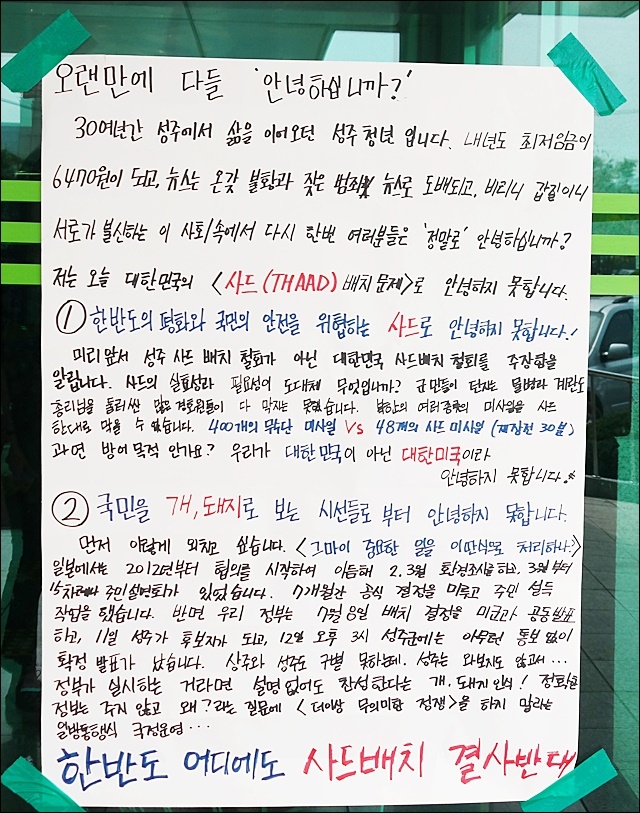 오랜만에 다들 '안녕하십니까?'
30여년간 성주에서 삶을 이어오던 성주청년 입니다. 내년도 최저임금이
6470원이 되고, 뉴스는 온갖 불화과 잦은 범죄 뉴스로 도배되고, 비리니 갑질이니
서로가 불신하는 이 사회속에서 다시 한번 여러분들은 '정말로' 안녕하십니까?
저는 오늘 대한민국의 <사드(THAAD) 배치문제>로 안녕하지 못합니다.
① 한반도의 평화와 국민의 안전을 위협하는 사드로 안녕하지 못합니다!
미리 앞서 성주 사드 배치 철회가 아닌 대한민국 사드배치 철회를 주장함을
알립니다. 사드의 실효성과 필요성이 도대체 무엇입니까? 군민들이 던지는 달걀과 계란도
총리님을 둘러싼 많은 경호원들이 다 막지는 못했습니다. 북한의 여러종류의 미사일을 사드
한대로 막을 수 있습니다. 400개의 무수단 미사일 VS 48개의 사드 미사일 (재장전 30분)
과연 방어 목적 인가요? 우리가 대한민국이 아닌 대한미국이라
안녕하지 못합니다.
② 국민을 개, 돼지로 보는 시선들로 부터 안녕하지 못합니다.
먼저 이렇게 외치고 싶습니다. <그마이 중요한 일을 이딴식으로 처리하나>
일본에서는 2012년부터 협의를 시작하여 이듬해 2.3월 환경조사를 하고, 3월부터
차례나 주민설명회가 있었습니다. 7개월간 공식 결정을 미루고 주민 설득
작업을 했습니다. 반면 우리 정부는 7월8일 배치 결정을 미국과 공동발표
하고, 11일 성주가 후보지가 되고, 12일 오후 3시 성주군에는 아무런 통보 없이
확정 발표가 났습니다. 상주와 성주도 구별 못하는데. 성주는 와보지도 않고서...
정부가 실시하는 거라면 설명 없어도 찬성한다는 개, 돼지 인식! 정확한
정보는 주지 않고 왜?라는 질문에 <더이상 무의미한 정쟁>을 하지 말라는
일방통행식 국정운영...
한반도 어디에도 사드배치 결사반대